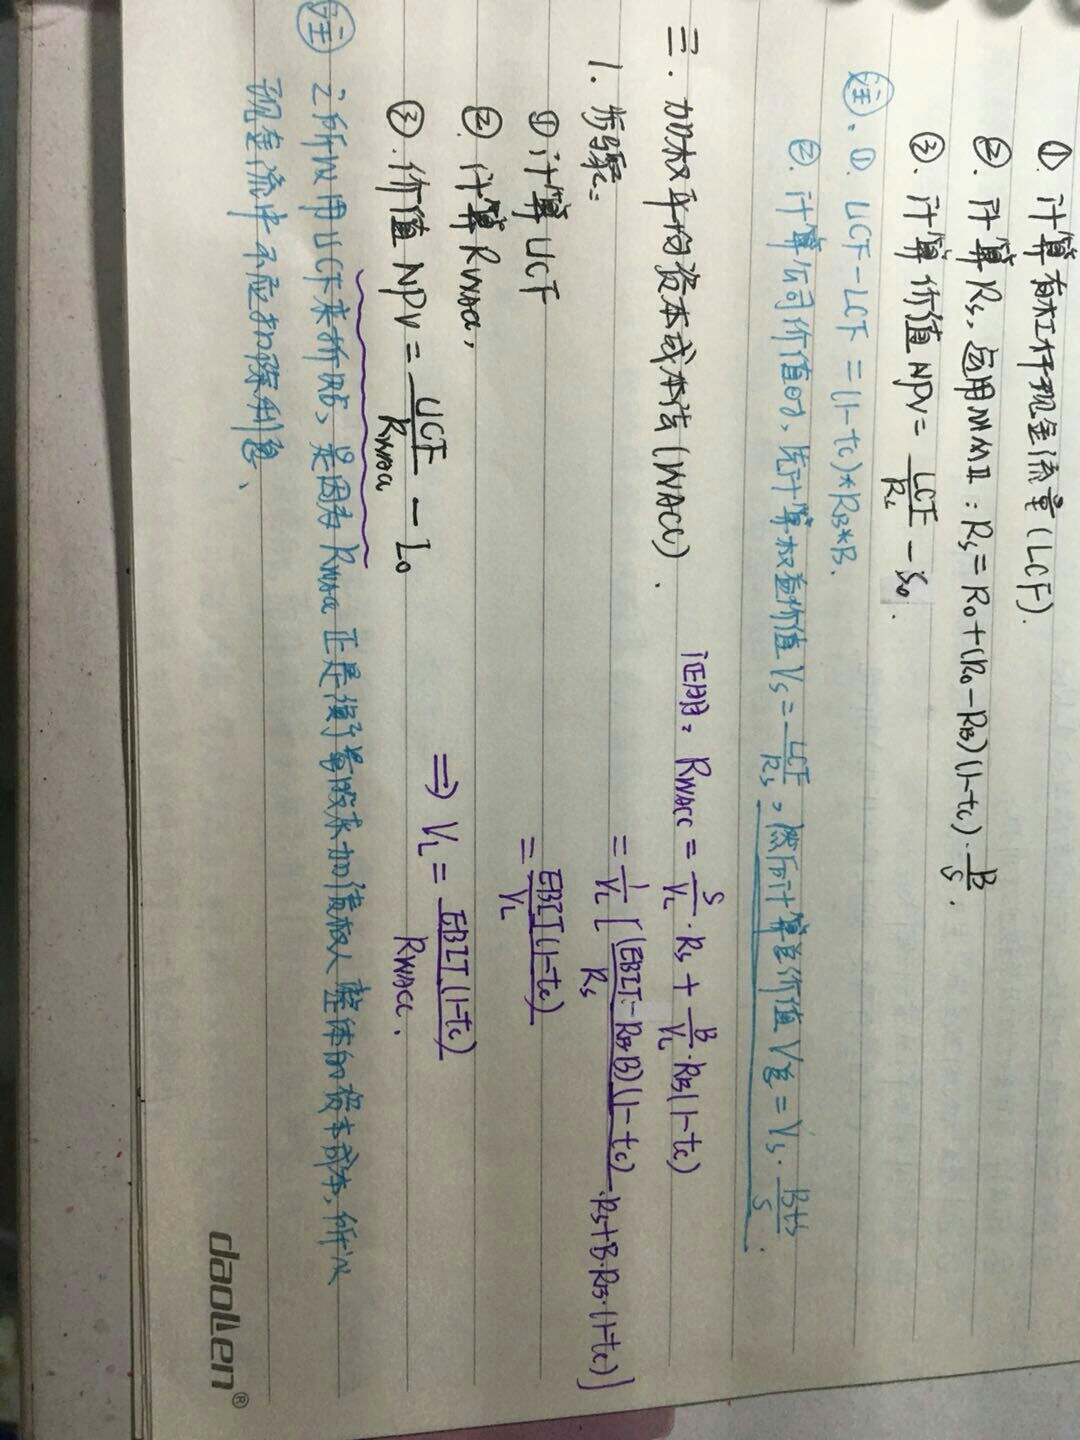 ①. 计算有杠杆现金流量(LCF).
②. 计算Rs, 运用MMⅡ: Rs=R0+(R0-RB)(1-tc)·B/S.
③. 计算价值NPV= LCF/Rs - S0.
注. ①. UCF-LCF=(1-tc)*RB*B.
②. 计算公司价值时, 先计算权益价值Vs=LCF/Rs, 然后计算总价值V总=Vs·B+S/S.
三. 加权平均资本成本法(WACC).
1. 步骤:
① 计算UCF
② 计算Rwacc,
③. 价值NPV=UCF/Rwacc - I0
证明: RWACC=S/VL·Rs+B/VL·RB(1-tc)
=1/VL[(EBIT-RBB)(1-tc)/Rs·Rs+B·RB·(1-tc)]
=EBIT(1-tc)/VL
⇒ VL=EBIT(1-tc)/RWACC.
注 之所以用UCF来折现, 是因为Rwacc正是股东加债权人整体的资本成本, 所以
现金流中不应扣除利息.
daollen®